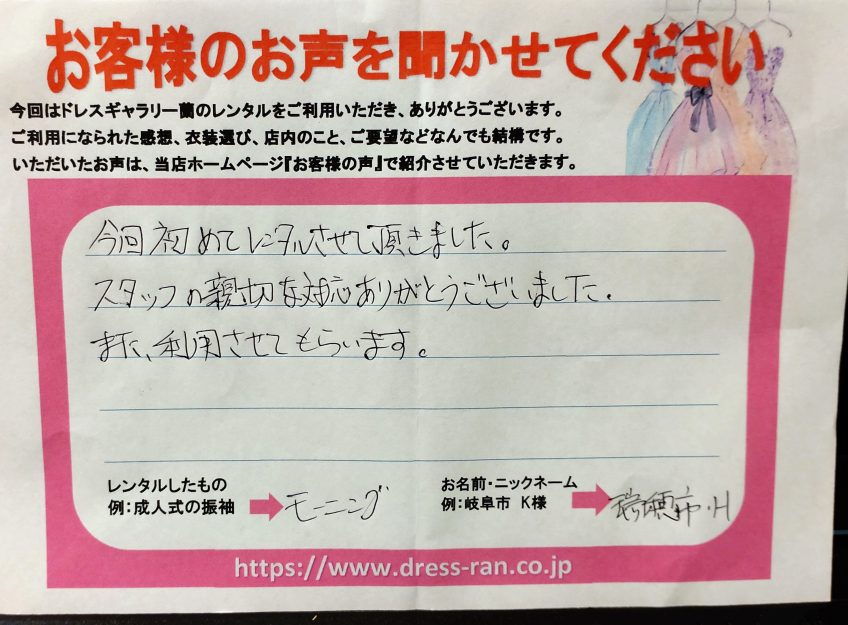 お客様のお声を聞かせてください
今回はドレスギャラリー蘭のレンタルをご利用いただき、ありがとうございます。
ご利用になられた感想、衣装選び、店内のこと、ご要望などなんでも結構です。
いただいたお声は、当店ホームページ『お客様の声』で紹介させていただきます。
今回初めてレンタルさせて頂きました。
スタッフの親切な対応ありがとうございました。
また、利用させてもらいます。
レンタルしたもの
例：成人式の振袖
モーニング
お名前・ニックネーム
例：岐阜市 K様
瑞穂市・H
https://www.dress-ran.co.jp